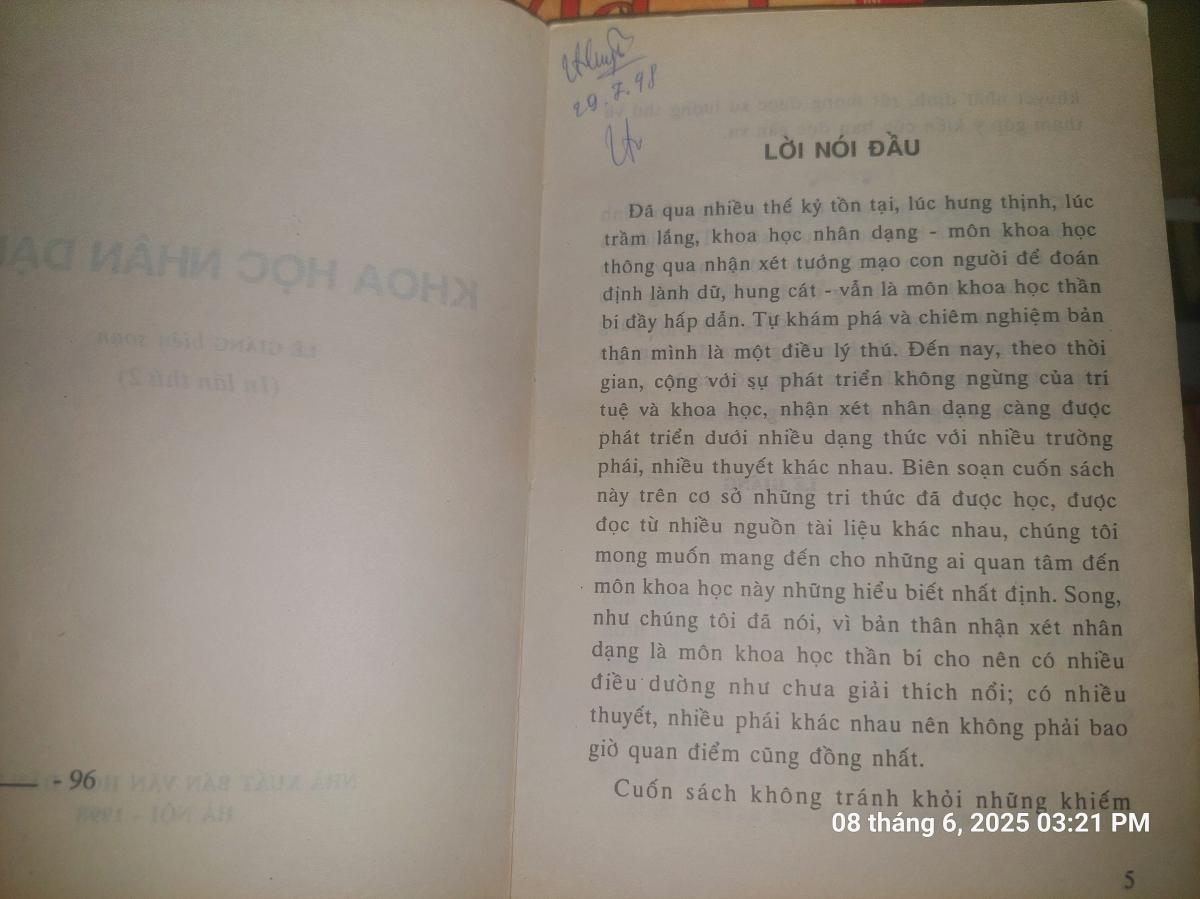 - 96
29.7.98
LỜI NÓI ĐẦU
Đã qua nhiều thế kỷ tồn tại, lúc hưng thịnh, lúc
trầm lắng, khoa học nhân dạng - môn khoa học
thông qua nhận xét tướng mạo con người để đoán
định lành dữ, hung cát - vẫn là môn khoa học thần
bí đầy hấp dẫn. Tự khám phá và chiêm nghiệm bản
thân mình là một điều lý thú. Đến nay, theo thời
gian, cộng với sự phát triển không ngừng của trí
tuệ và khoa học, nhận xét nhân dạng càng được
phát triển dưới nhiều dạng thức với nhiều trường
phái, nhiều thuyết khác nhau. Biên soạn cuốn sách
này trên cơ sở những tri thức đã được học, được
đọc từ nhiều nguồn tài liệu khác nhau, chúng tôi
mong muốn mang đến cho những ai quan tâm đến
môn khoa học này những hiểu biết nhất định. Song,
như chúng tôi đã nói, vì bản thân nhận xét nhân
dạng là môn khoa học thần bí cho nên có nhiều
điều dường như chưa giải thích nổi; có nhiều
thuyết, nhiều phái khác nhau nên không phải bao
giờ quan điểm cũng đồng nhất.
Cuốn sách không tránh khỏi những khiếm
08 tháng 6, 2025 03:21 PM
5